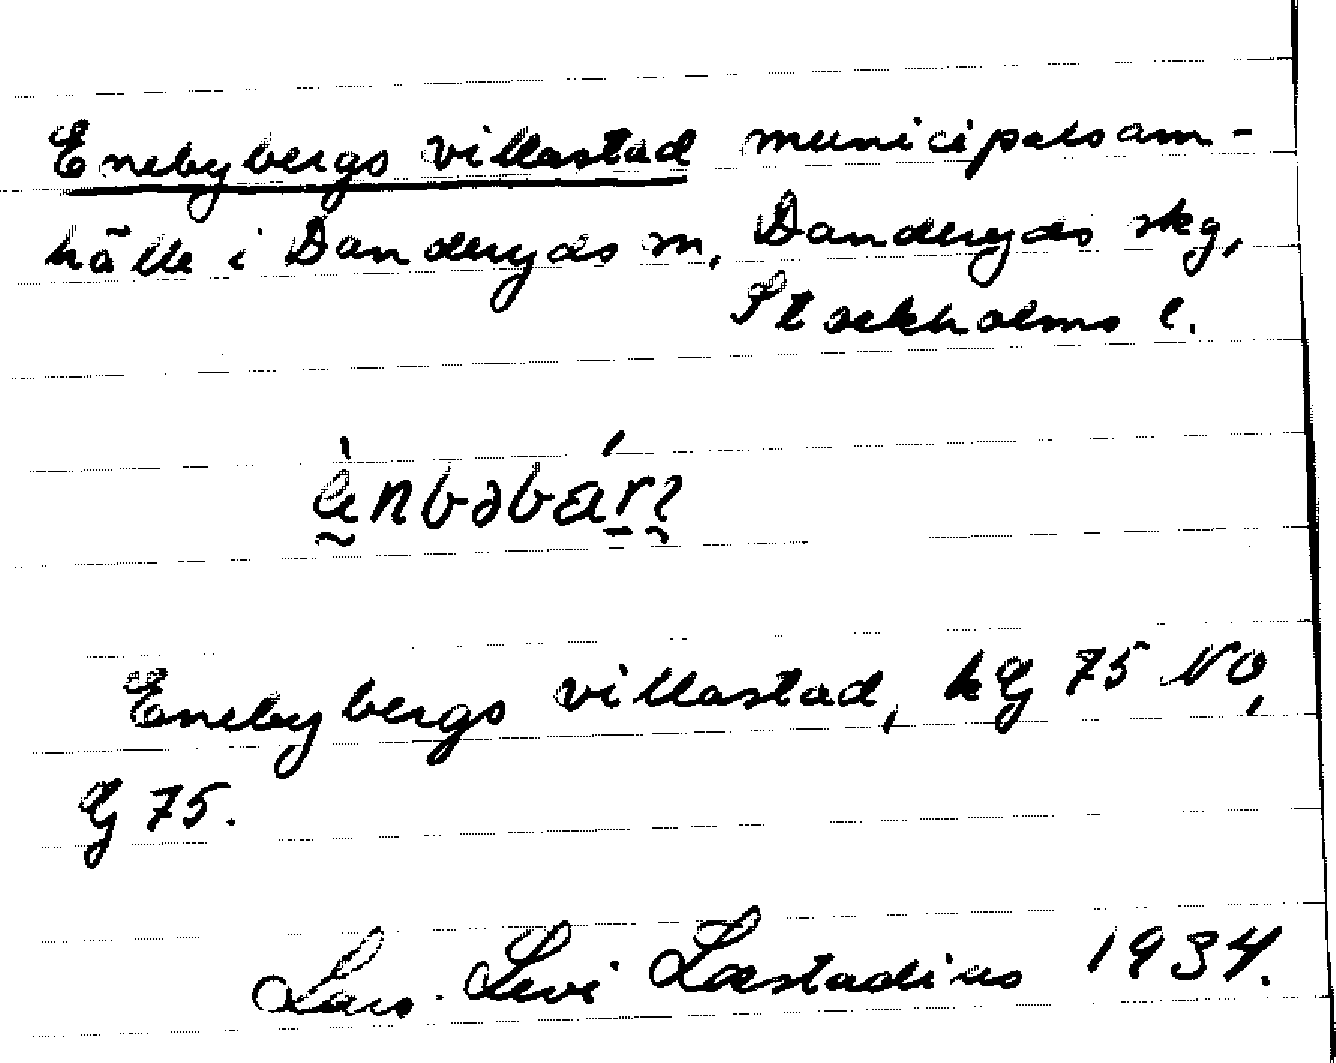 Enebybergs villastad municipalsam-
hälle i Danderyds sn, Danderyds skg,
Stockholms l.
Enebybergs villastad, hG 75 NO,
G 75.
Lars-Levi Læstadius 1934.